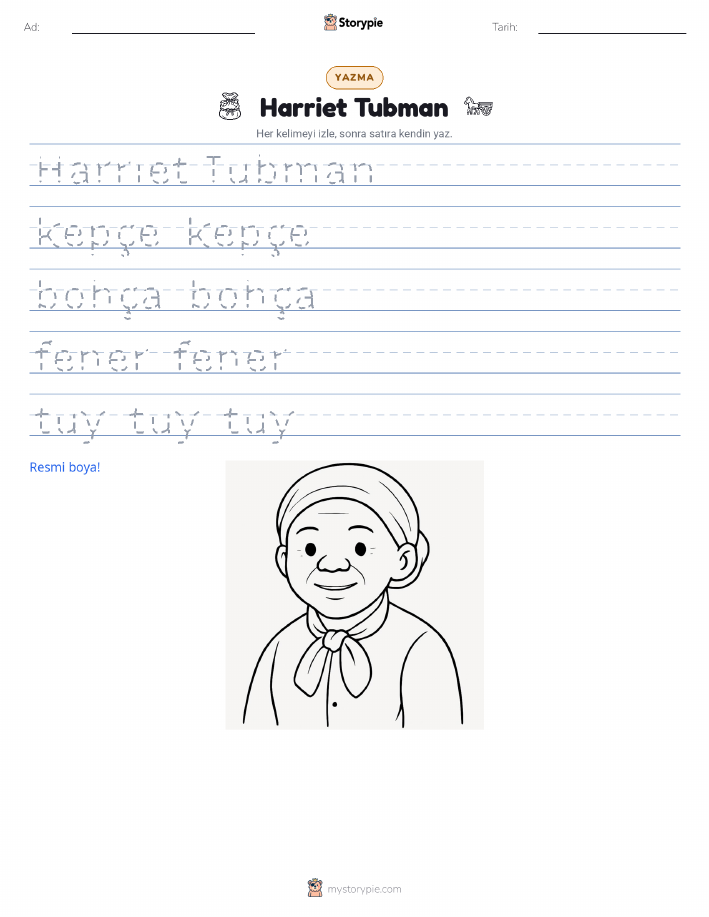 Ad:
Storypie
Tarih:
YAZMA
Harriet Tubman
Her kelimeyi izle, sonra satıra kendin yaz.
Harriet Tubman
kepçe kepçe
bohça bohça
fener fener
tuy tuy tuy
Resmi boya!
mystorypie.com